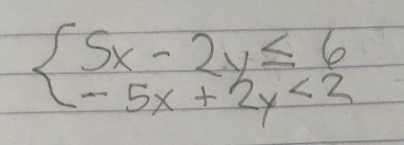 5x - 2y ≤ 6
- 5x + 2y < 2